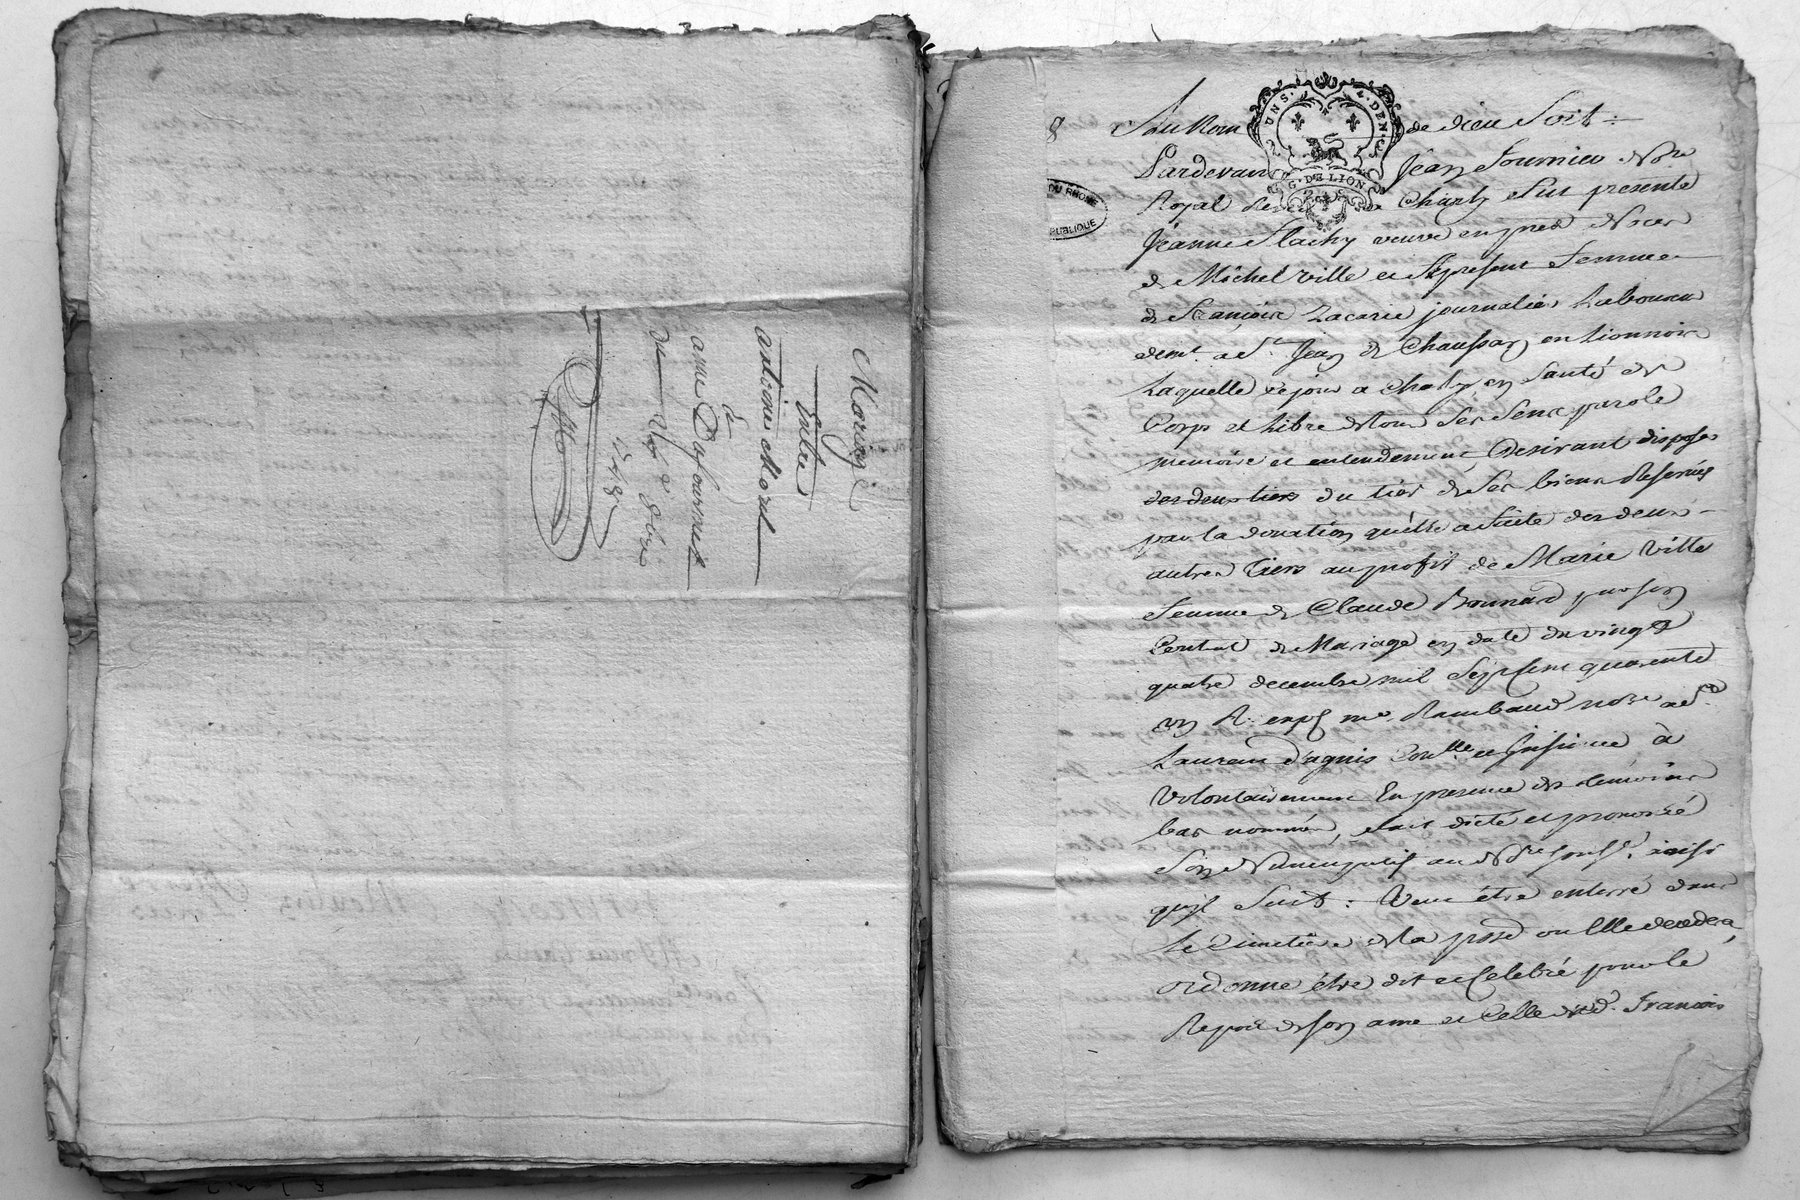 Mariage
Entre
antoine Morel
&
anne Dufournel
du 9bre
1748
8
Au Nom de dieu Soit
UN S. 4. DEN.
G. DE LION
DU RHONE
PUBLIQUE
Pardevant Jean fournier Nore
Royal de Charly fut presente
Jeanne flachy veuve en pres Noces
de Michel Ville et a present femme
de françois Zacarie journalier Laboureur
demt. a St. Jean de Chaussan en Lionnois
Laquelle ce jour a Charly en Santé de
Corps et Libre de tous Ses Sens parole
memoire et entendement, Desirant disposer
des deux tiers du tier de Ses biens Reservés
par la donation quelle a faite des deux
autres tiers au profit de Marie Ville
femme de Claude Bonnard par son
Contrat de Mariage en date du vingt
quatre decembre mil Sept cent quarente
un R. me. Rambaud nore a St.
Laurent d'agnis Conlle et insinué à
Volontairement En presence des temoins
bas nommés, fait dicté et prononcé
Son Nuncupatif au Nore souss. ainsi
quil Suit : Veut être enterré dans
Le Cimetière de la psse ou Elle decedera,
ordonne être dit et Celebré pour le
Repos de son ame et Celle dud. francois